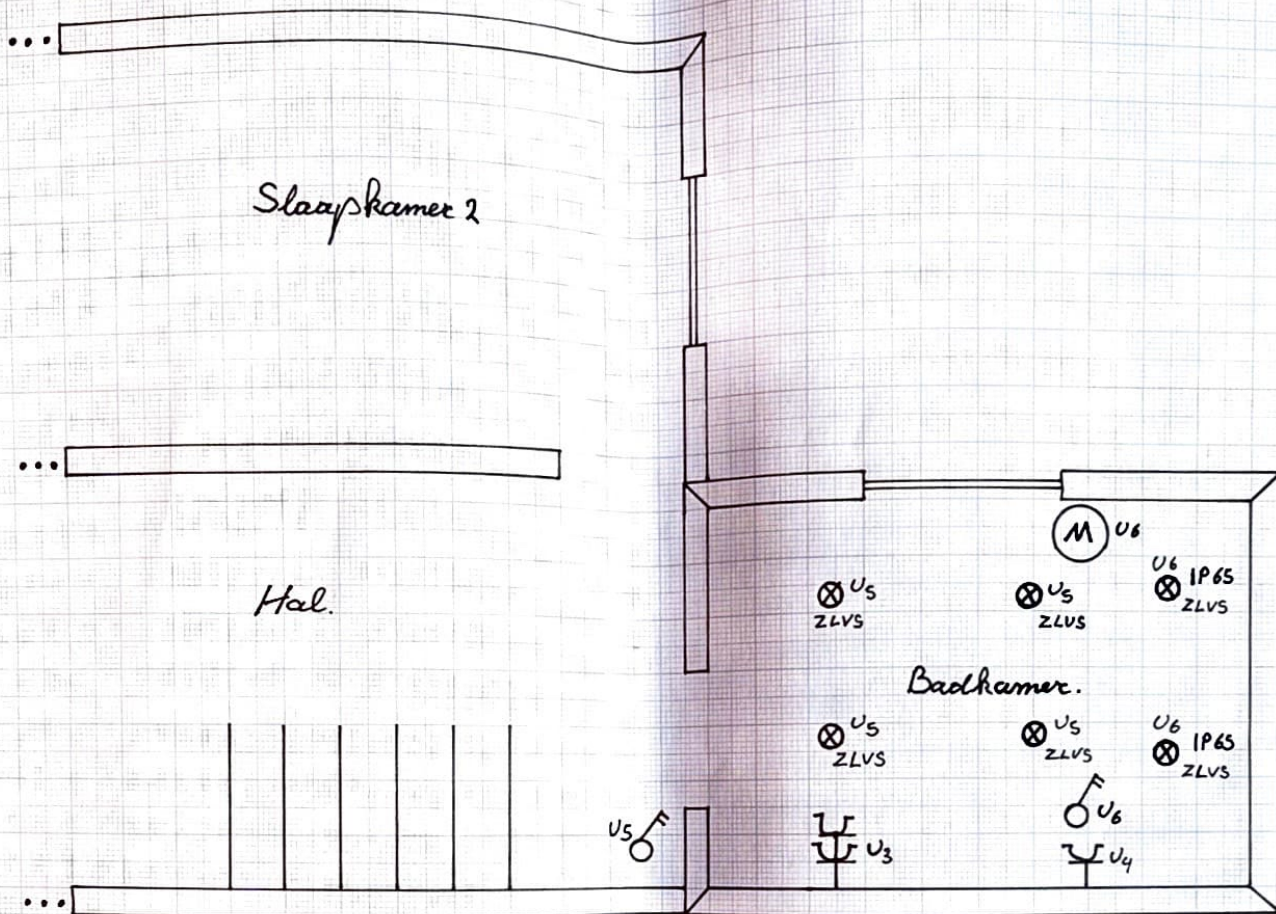 Slaapkamer 2
Hal.
U5
M U6
U5
ZLVS
U5
ZLVS
U6 IP65
ZLVS
Badkamer.
U5
ZLVS
U5
ZLVS
U6 IP65
ZLVS
U6
U3
U4